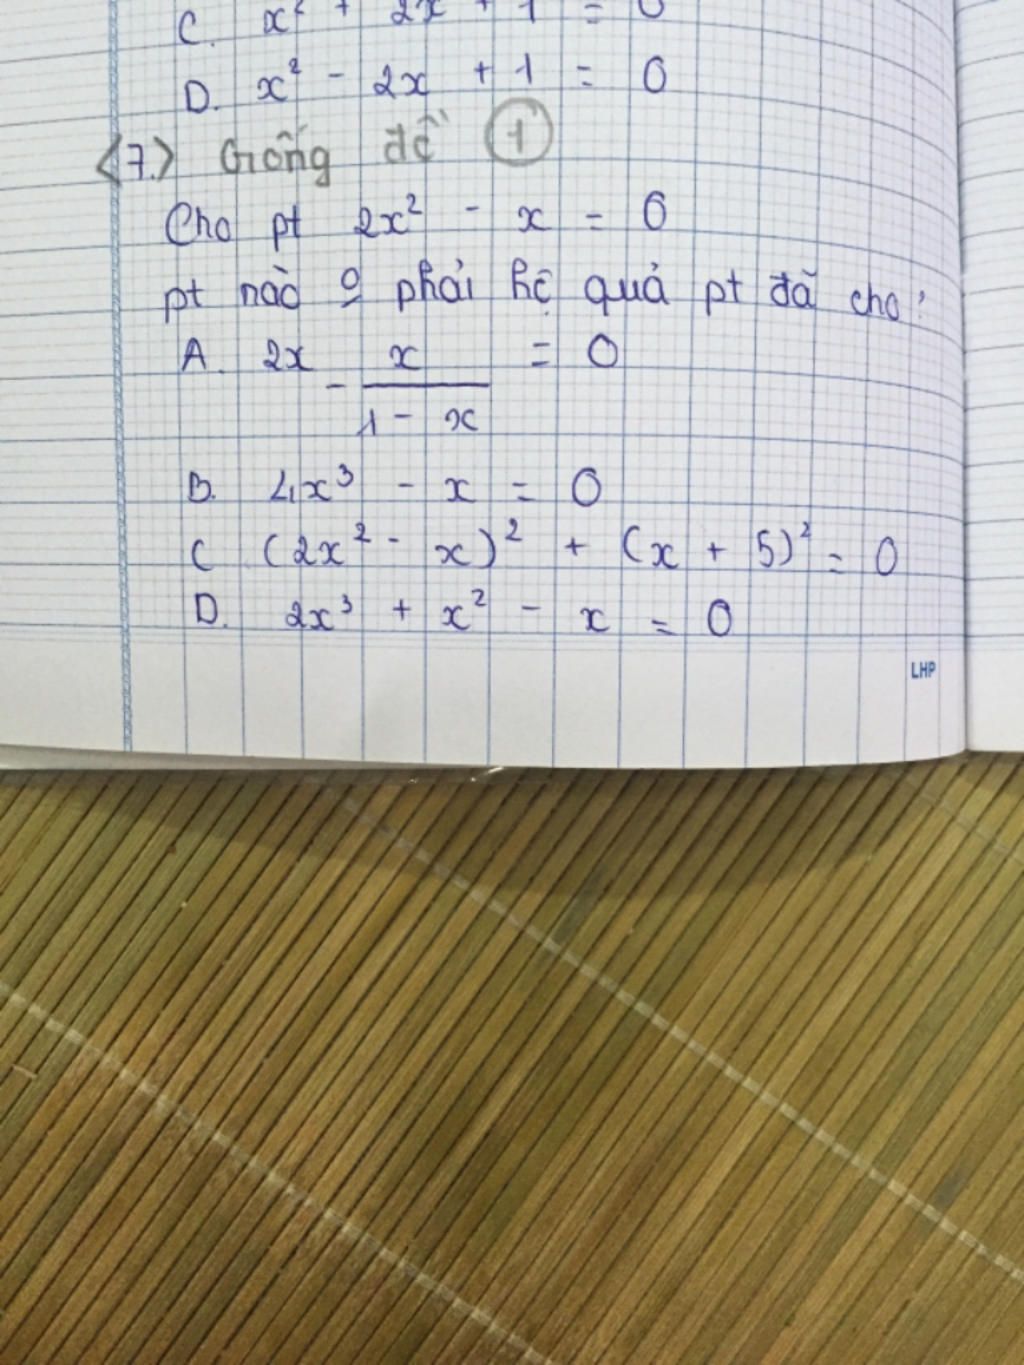 C. x² + 2x + 1 = 0
D. x² - 2x + 1 = 0
<7.> Giống đề 1
Cho pt 2x² - x = 0
pt nào o phải hệ quả pt đã cho?
A. 2x - x/(1 - x) = 0
B. 4x³ - x = 0
C (2x² - x)² + (x + 5)² = 0
D. 2x³ + x² - x = 0
LHP